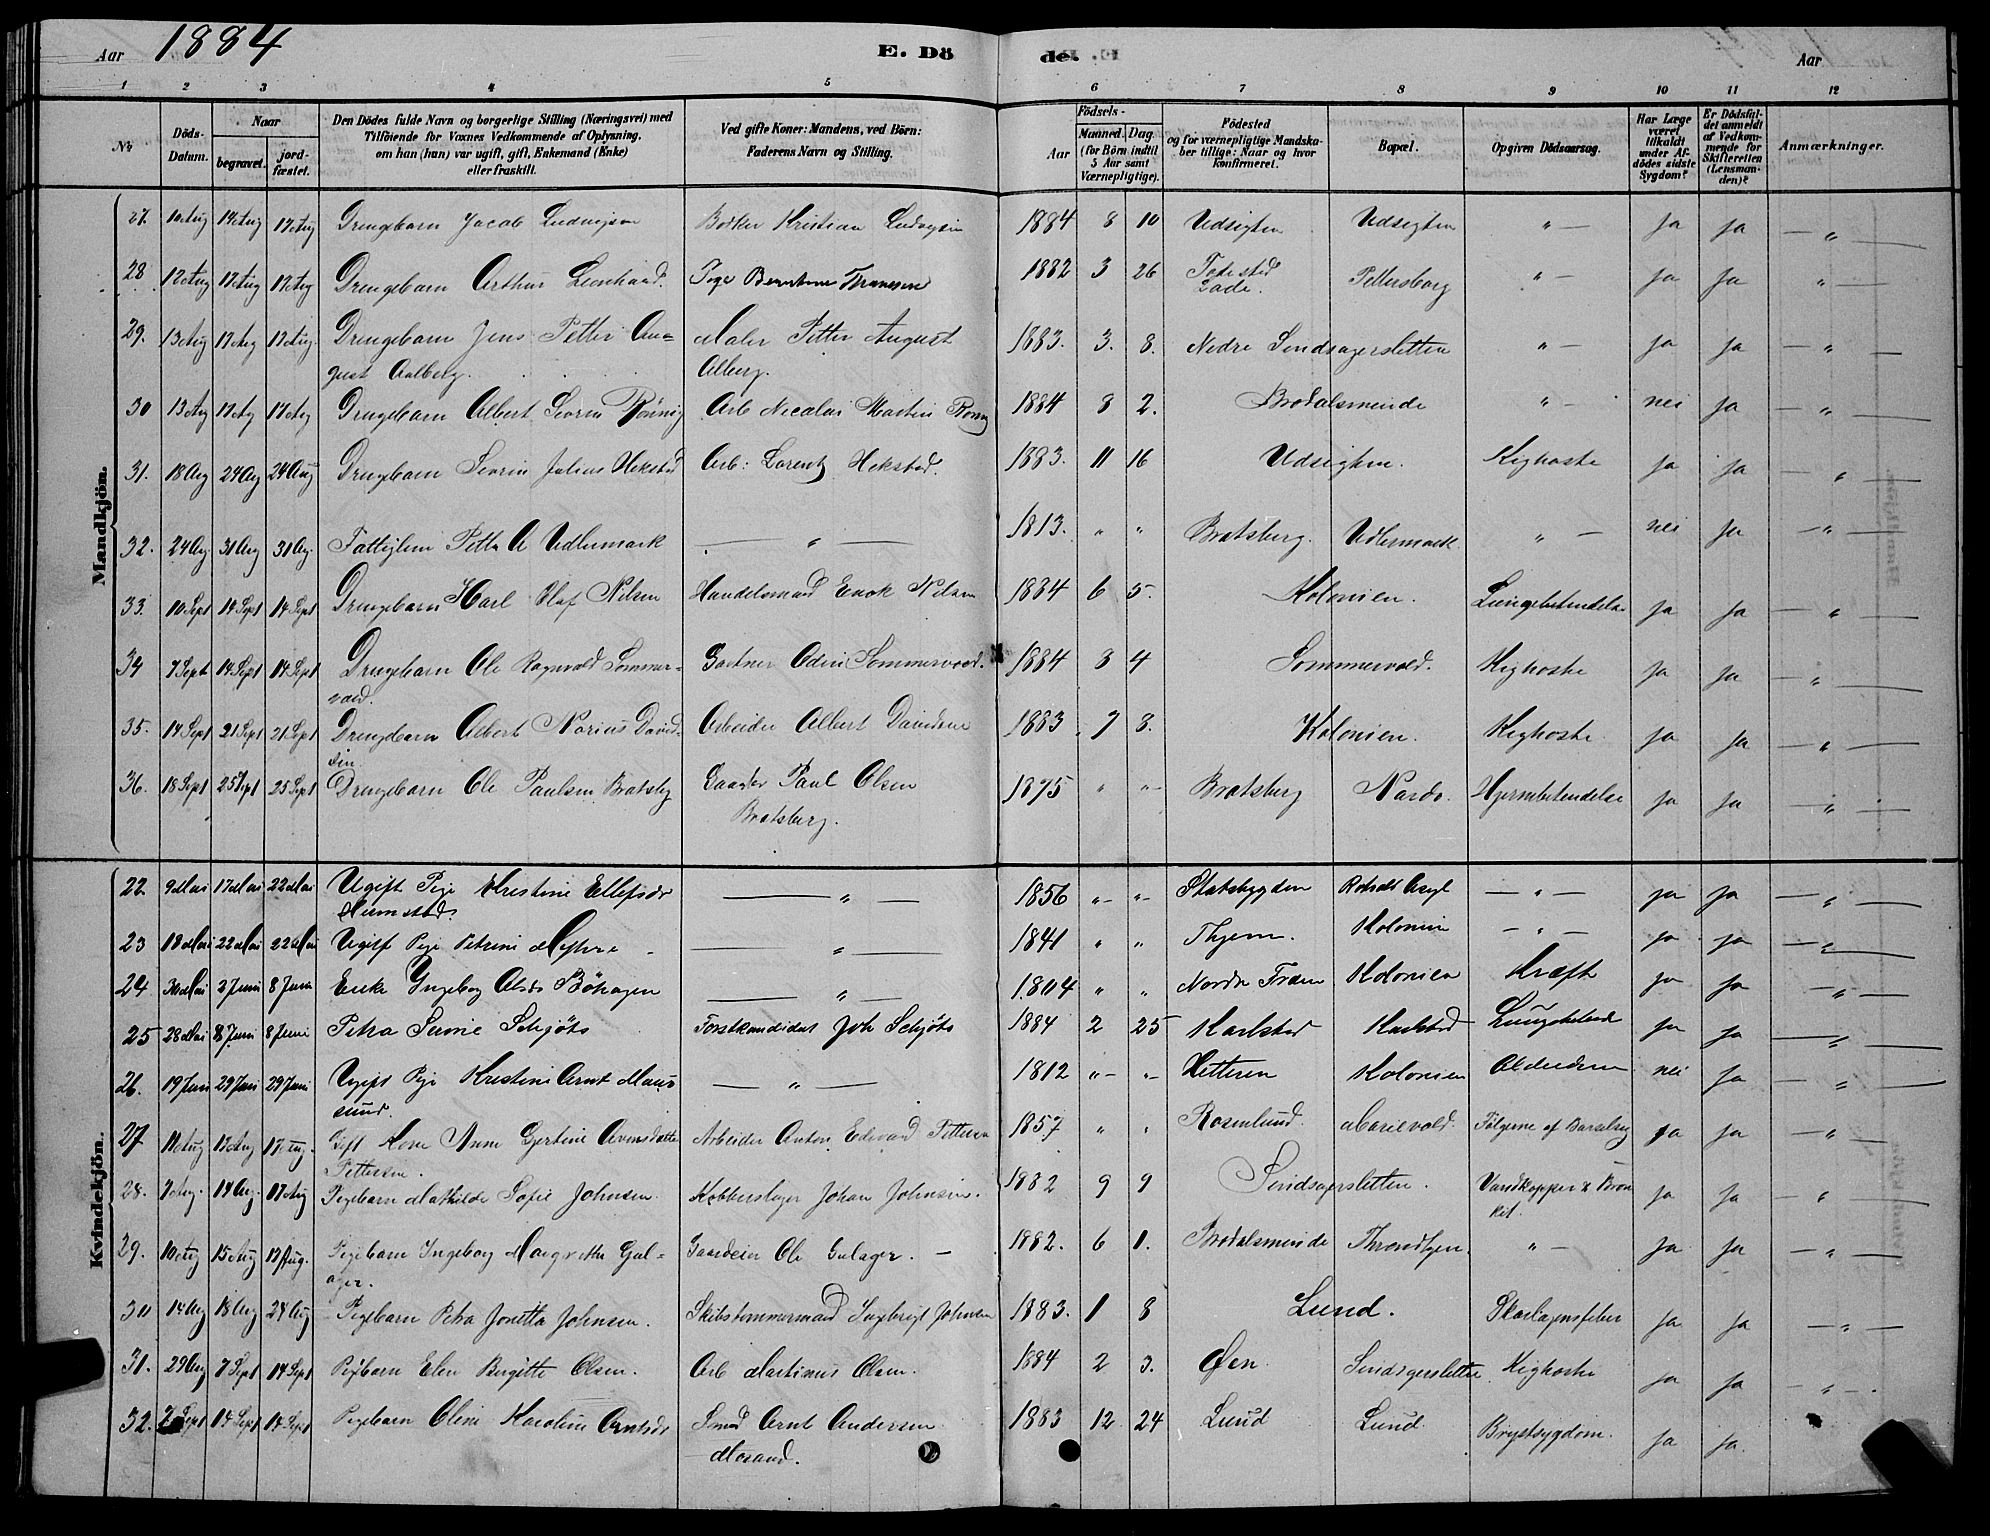 Aar 1884 E. Dö de. Aar
1 2 3 4 5 6 7 8 9 10 11 12
No Döds-Datum. Naar begravet. jord-fæstet. Den Dödes fulde Navn og borgerlige Stilling (Næringsvei) med Tilföiende for Voxnes Vedkommende af Oplysning, om han (hun) var ugift, gift, Enkemand (Enke) eller fraskilt. Ved gifte Koner: Mandens, ved Börn: Faderens Navn og Stilling. Födsels- Aar Maaned. Dag. (for Börn indtil 5 Aar samt Værnepligtige). Födested og for værnepligtige Mandska-ber tillige: Naar og hvor konfirmeret. Bopæl. Opgiven Dödsaarsag. Har Læge været tilkaldt under Af-dödes sidste Sygdom? Er Dödsfal-det anmeldt af Vedkom-mende for Skifteretten (Lensman-den)? Anmærkninger.
Mandkjön.
27. 10 Aug 17 Aug 17 Aug Drengebarn Jacob Ludvigsen Bödker Kristian Ludvigsen 1884 8 10 Udsigten Udsigten " — ja ja — " —
28 12 Aug 17 Aug 17 Aug Drengebarn Arthur Leonhard. Pige Berntine Thranesen 1882 3 26 Lade. Pettersborg " — ja ja " —
29. 13 Aug 17 Aug 17 Aug. Drengebarn Jens Petter Au= Maler Petter August 1883. 3. 8. Nedre Sindsagersletten " — ja ja — " —
gust Aalberg. Alberg.
30 13 Aug 17 Aug 17 Aug Drengebarn Albert Sivrin Rönnig Arb Nicolai Martin Rönnig 1884 8 2. Brodalsminde " — nei ja — " —
31. 18 Aug 24 Aug 24 Aug Drengebarn Sivrin Julius Hekstad Arb: Lorentz Hekstad. 1883. 11 16 Udsigten. Kighoste ja ja — " —
32. 24 Aug 31 Aug 31 Aug. Fattiglem Petter A Udlermark — " — 1813. " " Bratsberg. Udlermark. " — nei ja — " —
33. 10 Sept 14 Sept 14 Sept Drengebarn Karl Olaf Nilsen Handelsmand Enok Nilsen 1884 6 5. Kolonien. Lungebetendelse ja ja — " —
34 7 Sept 14 Sept 14 Sept Drengebarn Ole Ragnvald Sommer= Gartner Odin Sommervold. 1884 3 4 Sommervold. Kighoste ja ja — " —
vold.
35. 14 Sept 21 Sept 21 Sept Drengebarn Albert Marius David= Arbeider Albert Davidsen 1883 7 8. Kolonien. Kighoste. ja ja — " —
sen.
36. 18 Sept 25 Sept 25 Sept Drengebarn Ole Paulsen Bratsberg Gaardbr Paul Olsen 1875 " " Bratsberg Nardo. Hjernebetendelse ja ja — " —
Bratsberg.
Kvindekjön.
22. 9 Mai 17 Mai 22 Mai Ugift Pige Kristine Ellefsdr — " — 1856 " " Statsbygden Rotvold Asyl — " — ja ja — " —
23 18 Mai 22 Mai 22 Mai Ugift Pige Petrine — " — 1841 " " Thjem. Kolonien — " — ja ja — " —
24 30 Mai 3 Juni 8 Juni Enke Ingeborg Olsdr Böhagen — " — 1804 " " Nordre Kolonien Kræft ja ja — " —
25 28 Mai 8 Juni 8 Juni Petra Schjöts Forstkandidat Joh Schjöts 1884 2 25 Karlstad Karlstad ja ja — " —
26. 19 Juni 29 Juni 29 Juni Ugift Pige Kristine Arnt Maus — " — 1812 " " Hitteren Kolonien Alderdom nei ja — " —
sund.
27 11 Aug 17 Aug 17 Aug. Gift Kone Anne Gjertine Arntsdatter Arbeider Anton Edvard Pettersen 1857 " " Rosenlund. Marievold. Fölgerne af Barselseng ja ja — " —
Pettersen.
28. 7 Aug. 14 Aug. 17 Aug Pigebarn Mathilde Sofie Johnsen. Kobberslager Johan Johnsen. 1882 9 9 Sindsagersletten. Vandkopper & Bron ja ja — " —
kit.
29. 10 Aug 15 Aug 17 Aug. Pigebarn Ingeborg Margrethe Gul= Gaardeier Ole Gulager. — 1882. 6 1. Brodalsminde Throndhjem. " — ja ja — " —
ager.
30 14 Aug 18 Aug 24 Aug Pigebarn Petra Jonetta Johnsen. Skibstömmermand Ingbrigt Johnsen 1883. 1 8 Lund. Skarlagensfeber ja ja — " —
31. 29 Aug 7 Sept 14 Sept Pigebarn Elen Birgitte Olsen. Arb Martinus Olsen. 1884 2 3. Öen. Sindsagersletten Kighoste ja ja — " —
32. 2 Sept 14 Sept 14 Sept Pigebarn Oline Karoline Arntsdr Smed Arnt Andersen 1883 12 24 Lund Lund Brystsygdom. ja ja.
Morand.